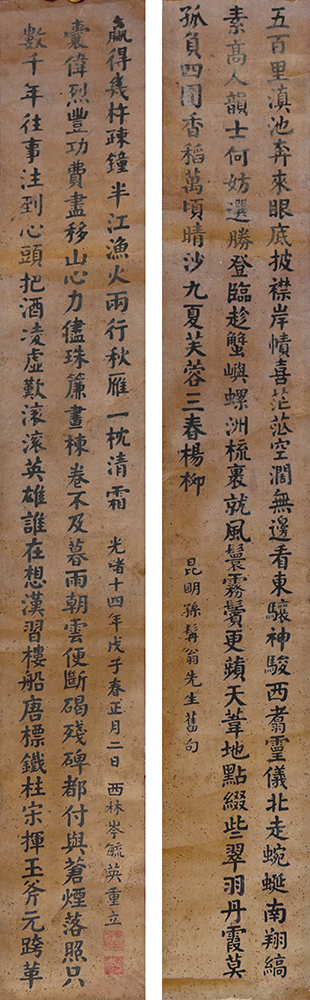 五百里滇池奔來眼底披襟岸幘喜茫茫空濶無邊看東驤神駿西翥靈儀北走蜿蜒南翔縞
素高人韻士何妨選勝登臨趁蟹嶼螺洲梳裏就風鬟霧鬢更蘋天葦地點綴些翠羽丹霞莫
孤負四圍香稻萬頃晴沙九夏芙蓉三春楊柳
昆明孫髯翁先生舊句
數千年往事注到心頭把酒凌虛歎滾滾英雄誰在想漢習樓船唐標鐵柱宋揮玉斧元跨革
囊偉烈豐功費盡移山心力儘珠簾畫棟卷不及暮雨朝雲便斷碣殘碑都付與蒼煙落照只
贏得幾杵疎鐘半江漁火兩行秋雁一枕清霜
光緒十四年戊子春正月二日 西林岑毓英重立